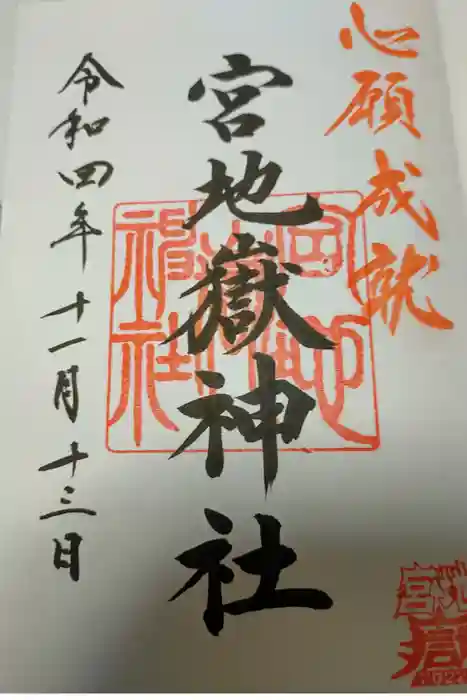 心願成就
宮地嶽神社
令和四年十一月十三日
宮地嶽神社